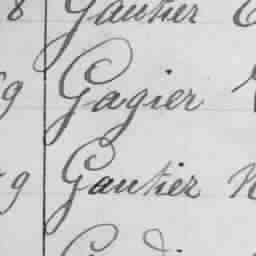 8 Gautier
9 Gagier
9 Gautier